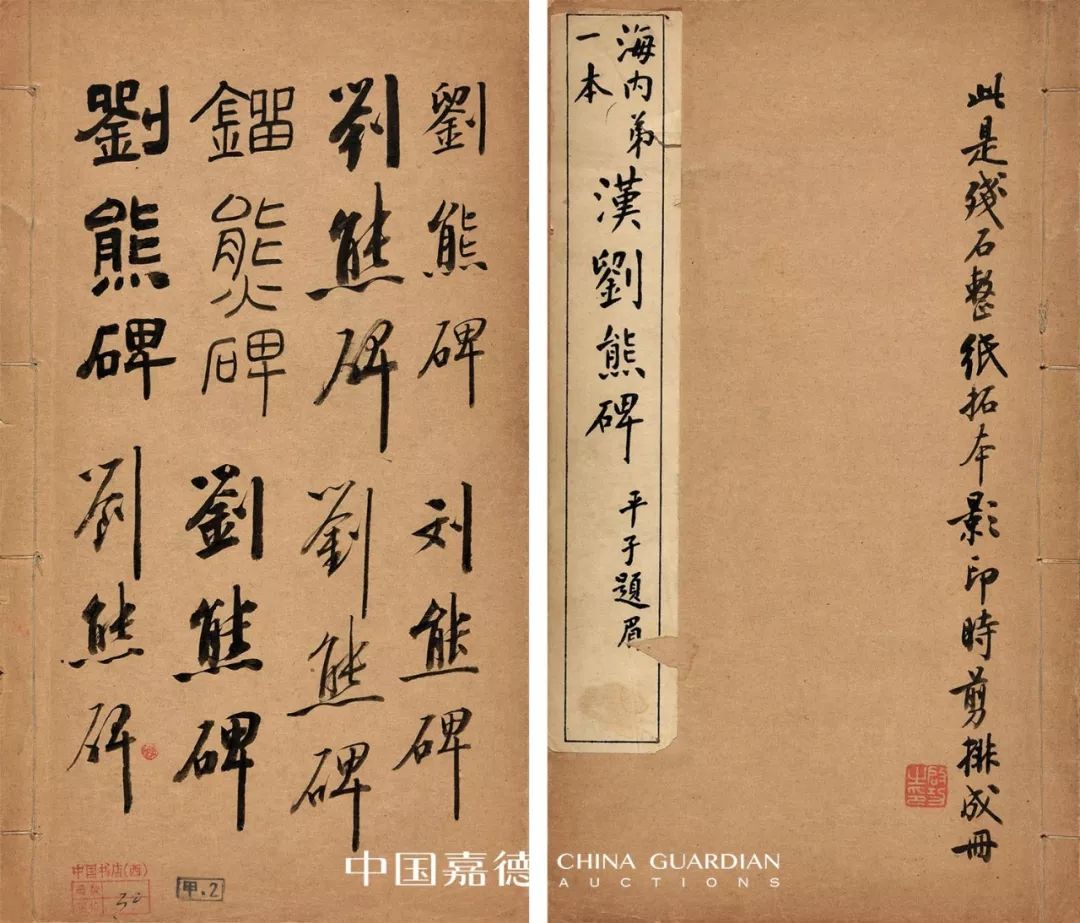 劉熊碑
劉熊碑
鎦熊碑
劉熊碑
刘熊碑
劉熊碑
劉熊碑
劉熊碑
中国书店(西)
30
甲.2
此是殘石整紙拓本影印時剪排成冊
海内弟
一本
漢劉熊碑
平子題眉
中国嘉德
CHINA GUARDIAN
AUCTIONS